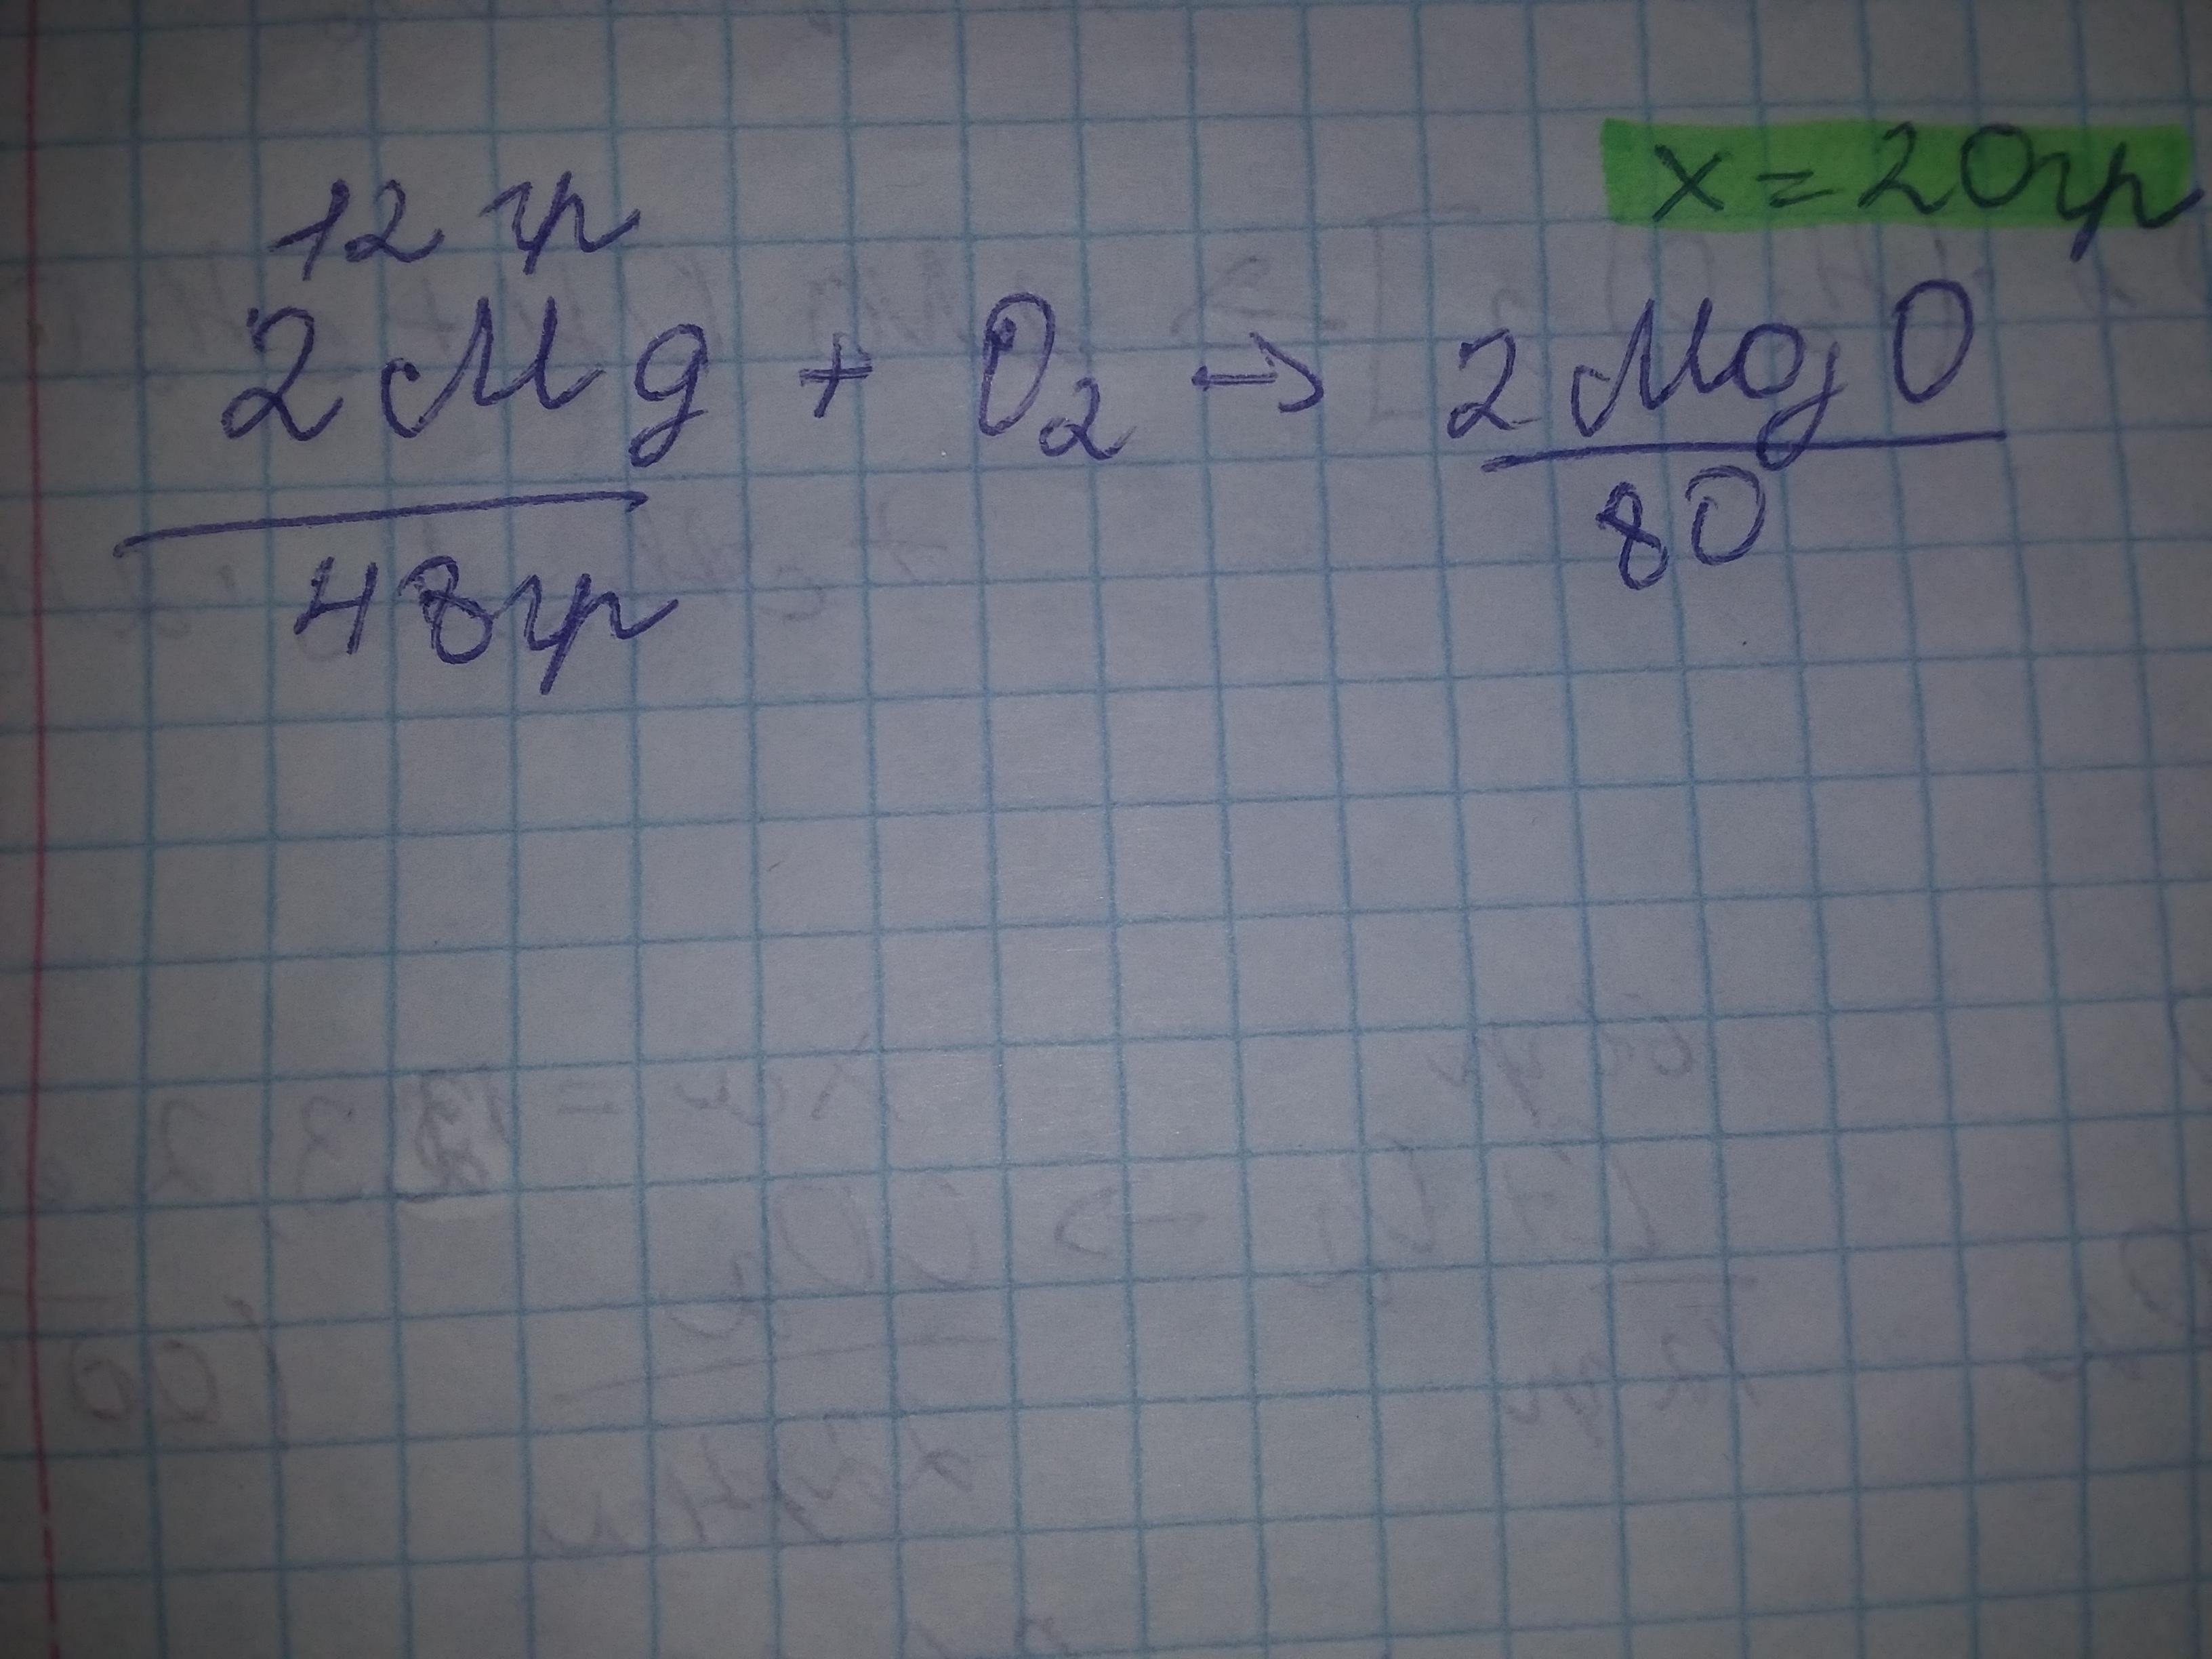 x = 20гр
12 гр
2 Mg + O₂ → 2 MgO
48гр
80